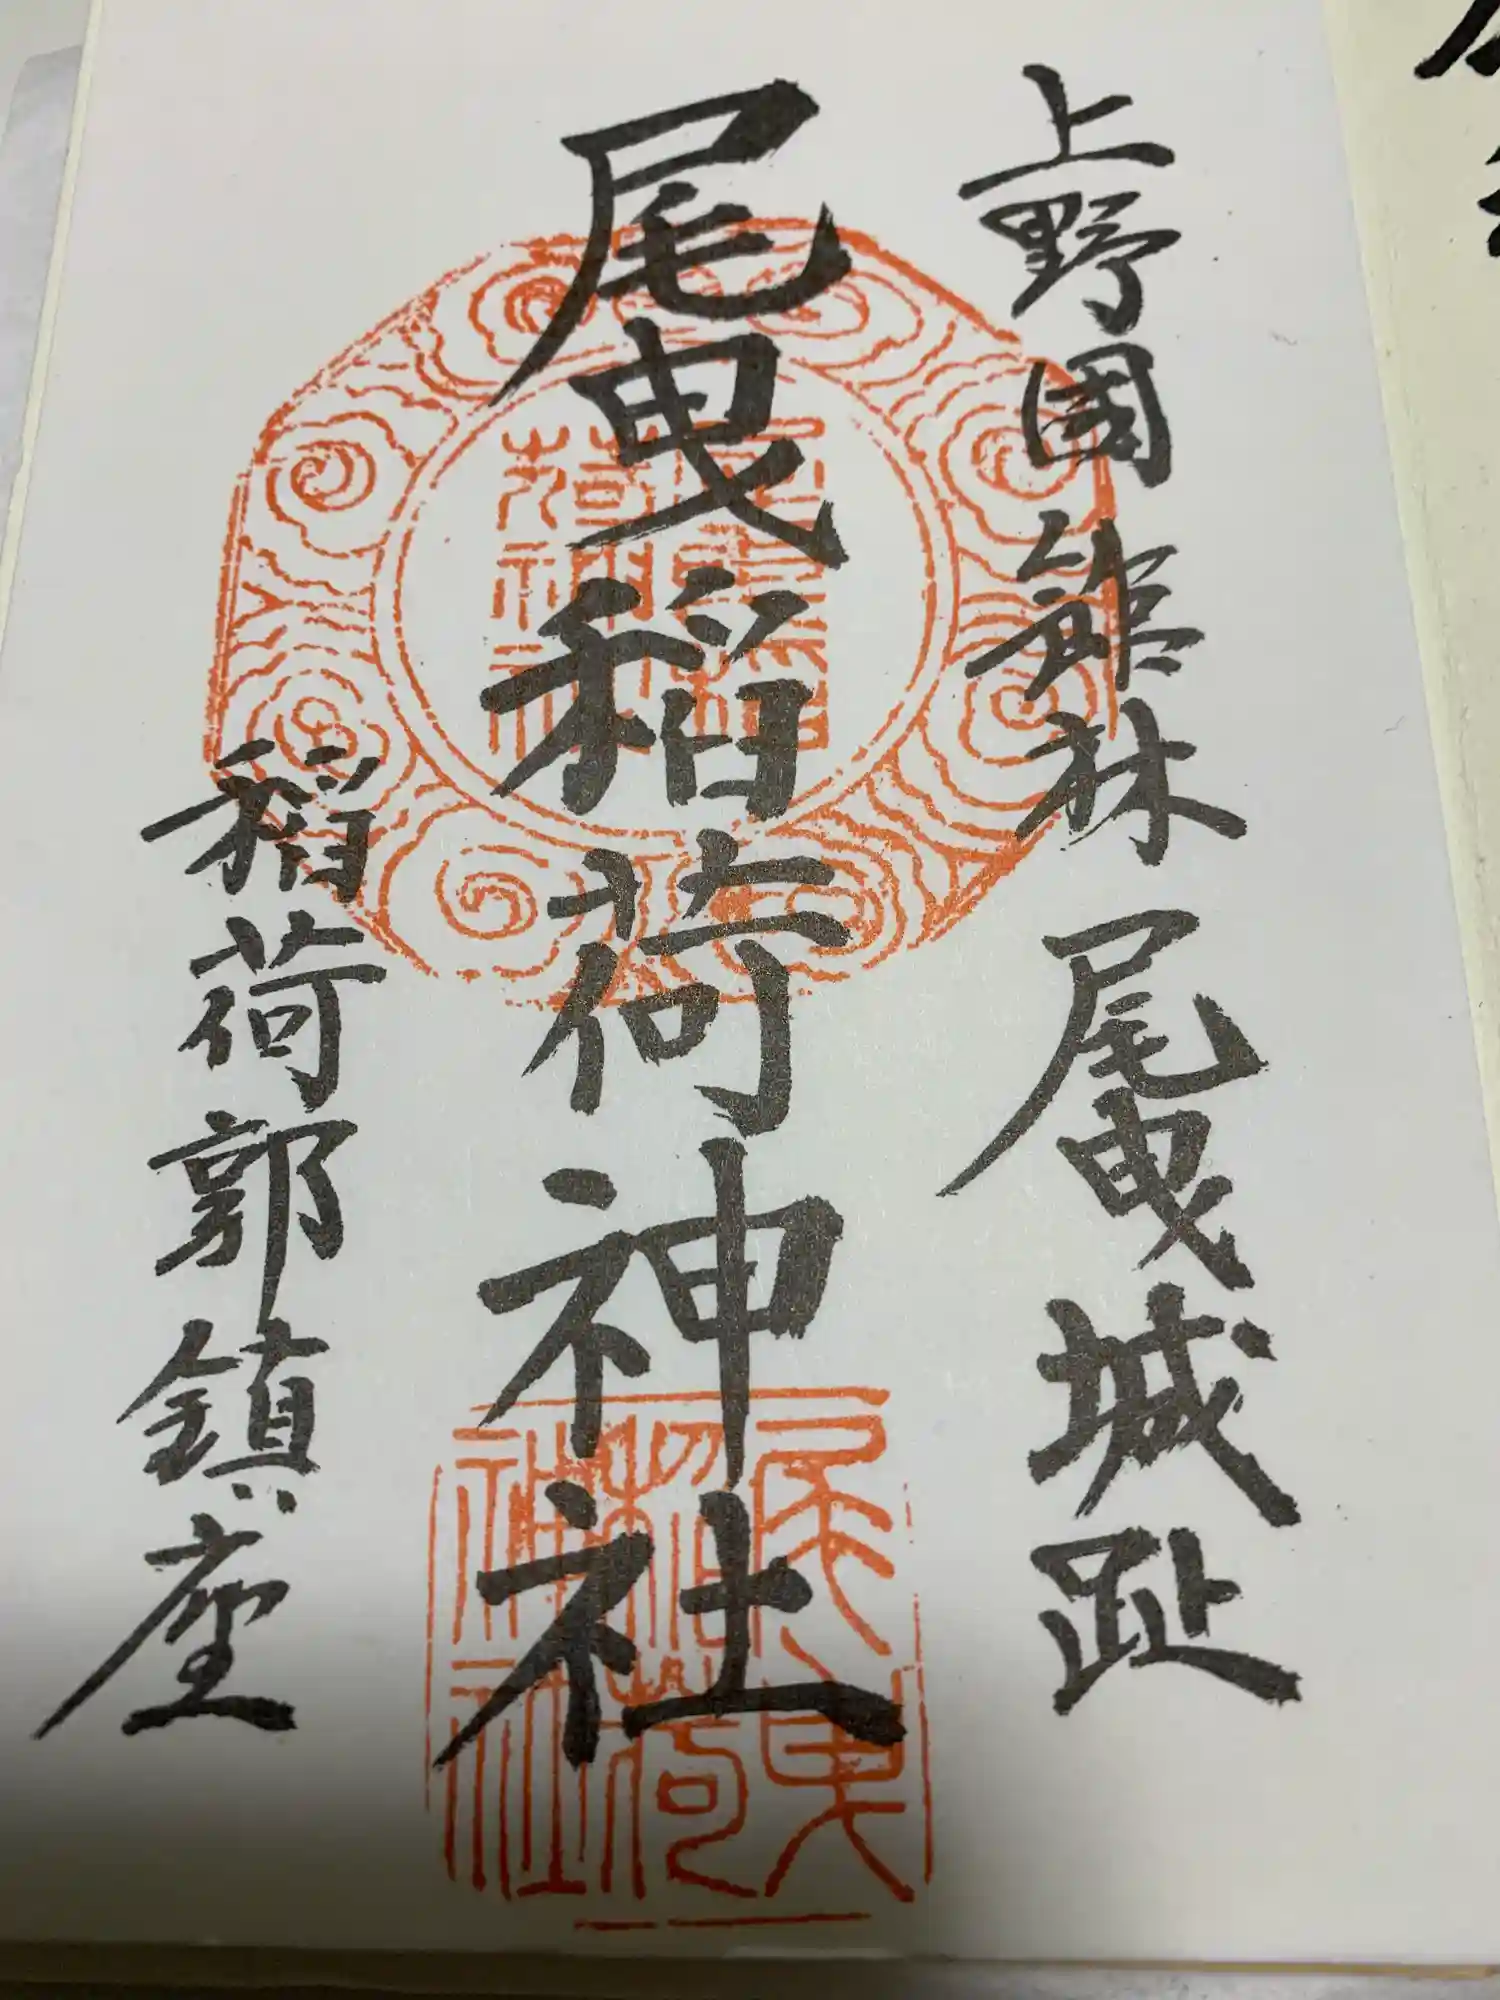 上野國館林尾曳城趾
尾曳稲荷神社
稲荷郭鎮座
尾曳稲荷神社